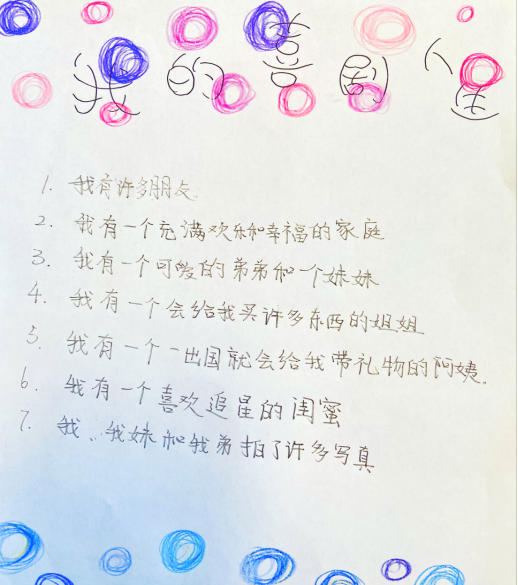 我的喜剧人生
1. 我有许多朋友
2. 我有一个充满欢乐和幸福的家庭
3. 我有一个可爱的弟弟和一个妹妹
4. 我有一个会给我买许多东西的姐姐
5. 我有一个一出国就会给我带礼物的阿姨.
6. 我有一个喜欢追星的闺蜜
7. 我、我妹和我弟拍了许多写真